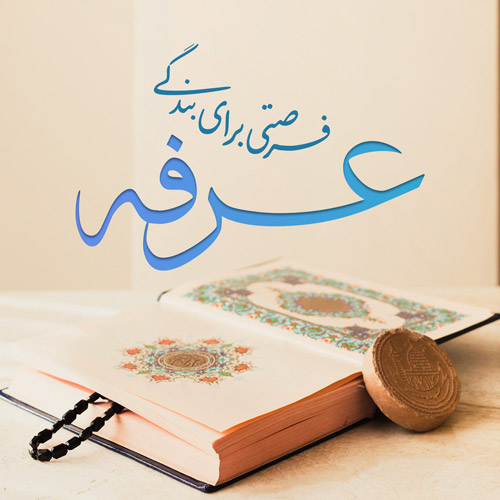 عرفه
فرصتی برای بندگی